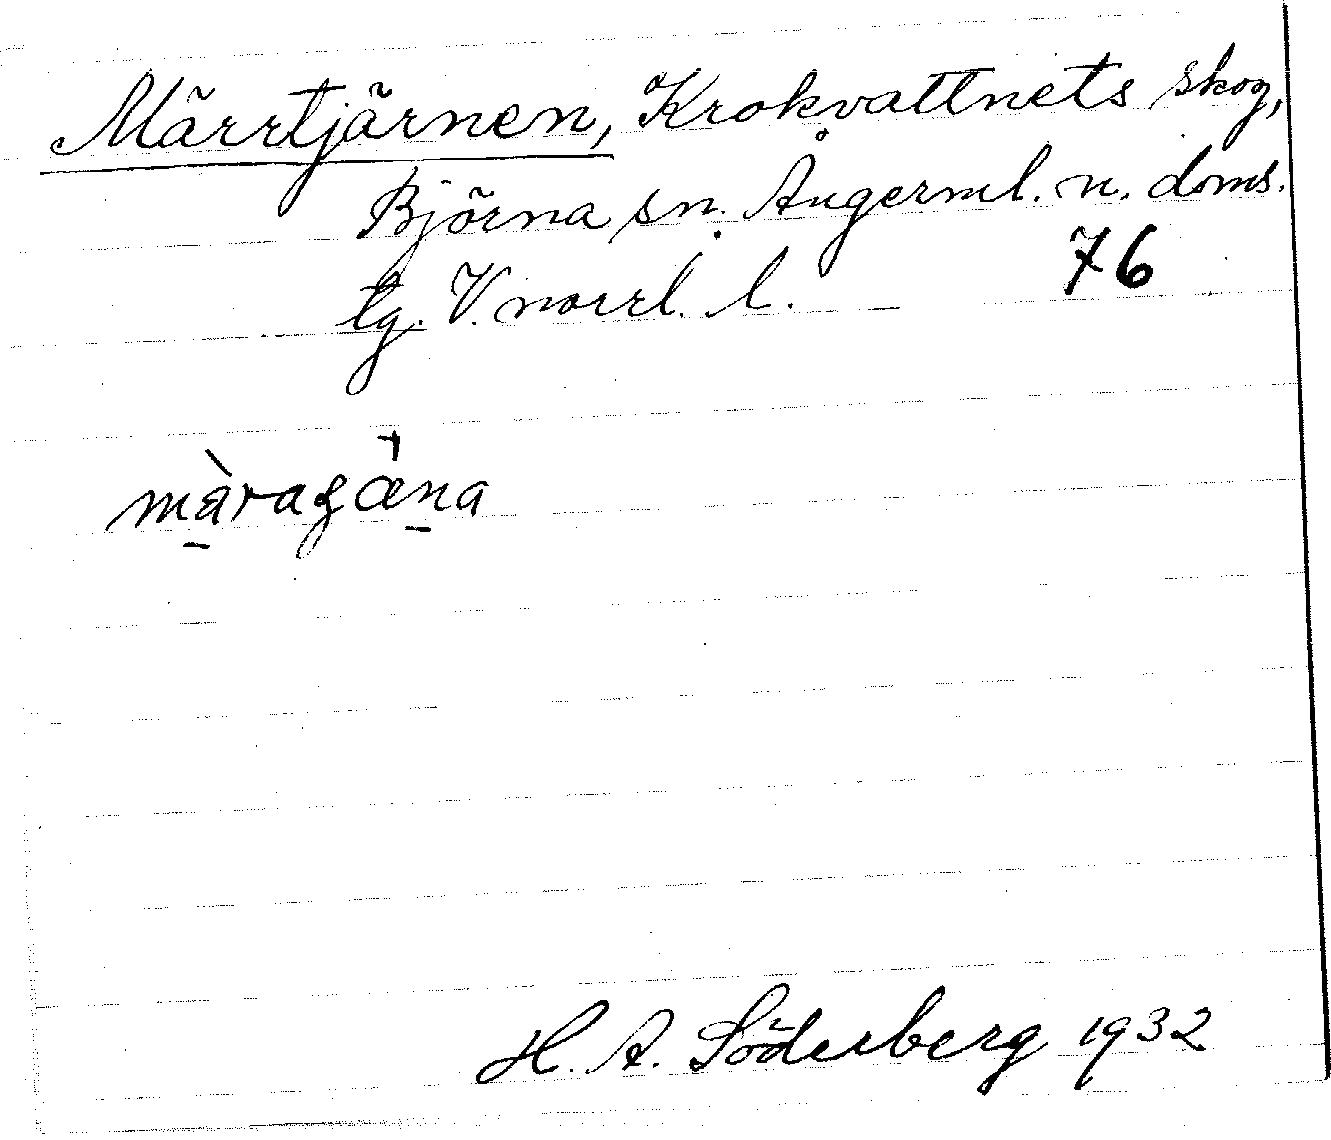 Märrtjärnen, Krokvattnets skog,
Björna sn. Ångerml. n. doms.
tg. V. norrl. l. 76
H. A. Söderberg 1932